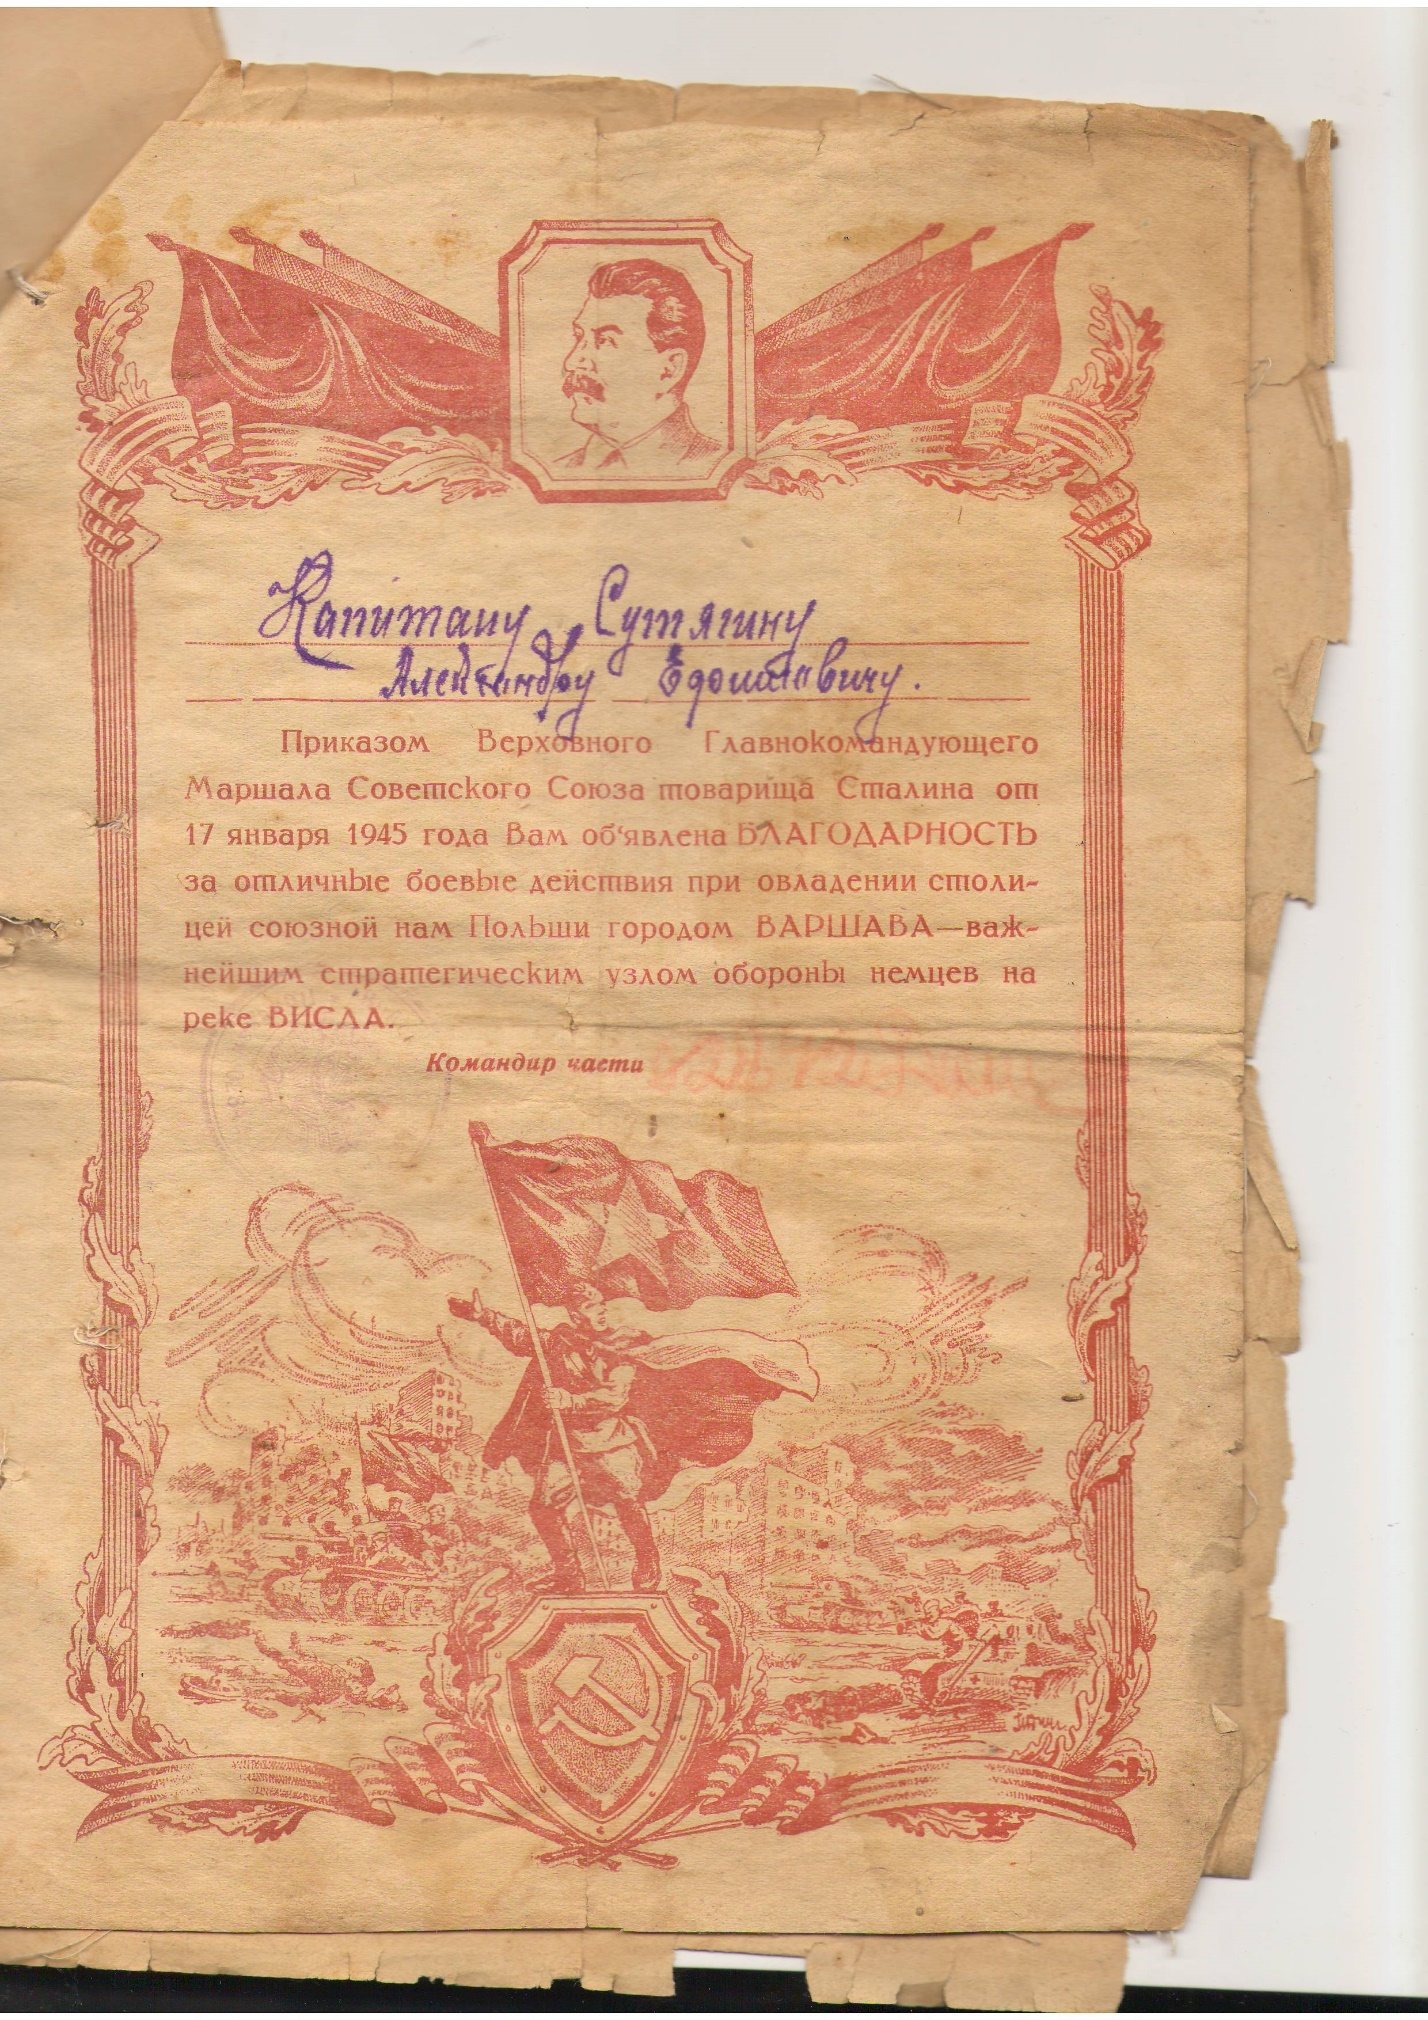 Капитану Сутягину
Александру
Приказом Верховного Главнокомандующего
Маршала Советского Союза товарища Сталина от
17 января 1945 года Вам об‘явлена БЛАГОДАРНОСТЬ
за отличные боевые действия при овладении столи-
цей союзной нам Польши городом ВАРШАВА—важ-
нейшим стратегическим узлом обороны немцев на
реке ВИСЛА.
Командир части